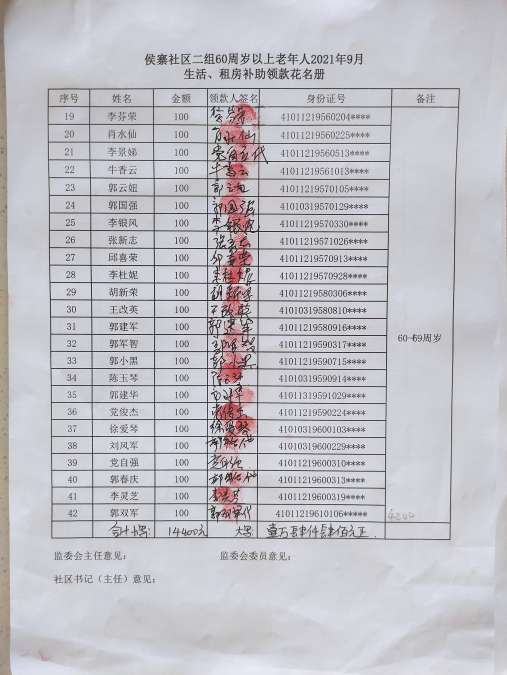 侯寨社区二组60周岁以上老年人2021年9月
生活、租房补助领款花名册
序号 姓名 金额 领款人签名 身份证号 备注
19 李芬荣 100 41011219560204****
20 肖水仙 100 肖水仙 41011219560225****
21 李景娣 100 41011219560513****
22 牛香云 100 牛香云 41011219561013****
23 郭云妞 100 郭云妞 41011219570105****
24 郭国强 100 郭国强 41010319570129****
25 李银凤 100 李银凤 41011219570330****
26 张新志 100 张新志 41011219571026****
27 邱喜荣 100 邱喜荣 41011219570913****
28 李杜妮 100 李杜妮 41011219570928****
29 胡新荣 100 胡新荣 41011219580306****
30 王改英 100 王改英 41010319580810****
31 郭建军 100 郭建军 41011219580916****
32 郭军智 100 郭军智 41011219590317****
60-69周岁
33 郭小黑 100 郭小黑 41011219590715****
34 陈玉琴 100 41010319590914****
35 郭建华 100 41011319591029****
36 党俊杰 100 41011219590224****
37 徐爱琴 100 徐爱琴 41010319600103****
38 刘风军 100 41010319600229****
39 党自强 100 党自强 41011219600310****
40 郭春庆 100 41011219600313****
41 李灵芝 100 李灵芝 41011219600319****
42 郭双军 100 41011219610106*****
合计小写: 14400元 大写: 壹万肆仟肆佰元正
监委会主任意见: 监委会委员意见:
社区书记（主任）意见: